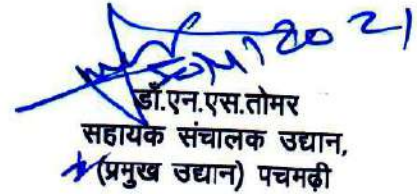 डॉ.एन.एस.तोमर
सहायक संचालक उद्यान,
(प्रमुख उद्यान) पचमढ़ी